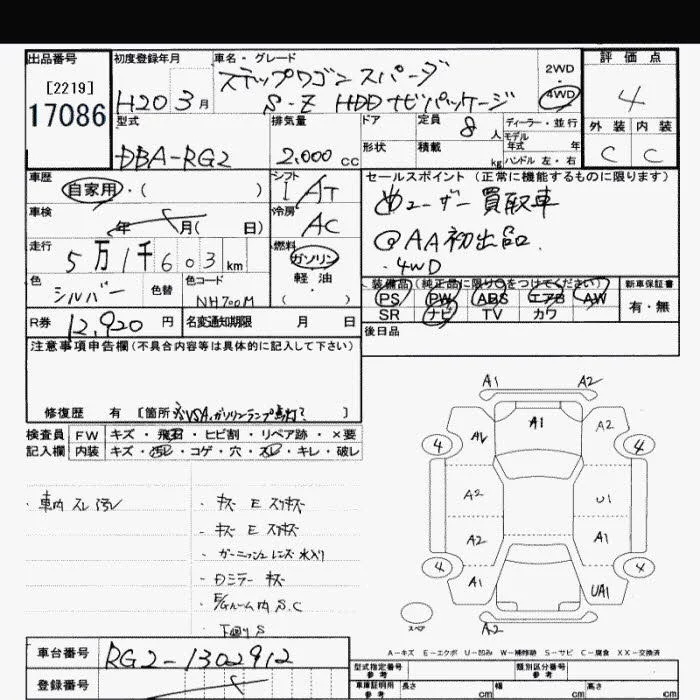 出品番号
[2219]
17086
初度登録年月
H20 3月
車名・グレード
ステップワゴン スパーダ
S-Z HDDナビパッケージ
2WD
4WD
評価点
4
外装 内装
C C
型式
DBA-RG2
排気量
2,000 cc
ドア
形状
定員
8人
積載
kg
ディーラー・並行
モデル
年式 年
ハンドル 左・右
車歴
自家用・( )
シフト
IAT
車検
年 月( 日)
冷房
AC
走行
5万1千603km
燃料
ガソリン
軽油
( )
色
シルバー
色替
色コード
NH700M
R券 12,920 円
名変通知期限 月 日
セールスポイント(正常に機能するものに限ります)
ユーザー買取車
@AA初出品.
・4WD
装備品(純正品に限り○をつけてください)
PS PW ABS エアB AW
SR ナビ TV カワ
新車保証書
有・無
後日品
注意事項申告欄(不具合内容等は具体的に記入して下さい)
修復歴 有 [箇所 VSA,ガソリンランプ ]
検査員 FW キズ・飛石・ヒビ割・リペア跡・×要
記入欄 内装 キズ・汚レ・コゲ・穴・スレ・キレ・破レ
・車内 スレ 汚レ
・キズ E スリキズ
・キズ E スリキズ
・ガーニッシュ レンズ 水入り
・Dミラー キズ
E/Gルーム内 S.C
A1 A2
A1 A2
4 4
A2 U1
A2 A1
4
A1 UA1
スペア
A2
A-キズ E-エクボ U-凹み W-補修跡 S-サビ C-腐食 XX-交換済
車台番号 RG2-1302912
登録番号
型式指定番号 参考
類別区分番号 参考
車庫証明用 参考 長さ cm 幅 cm 高さ cm